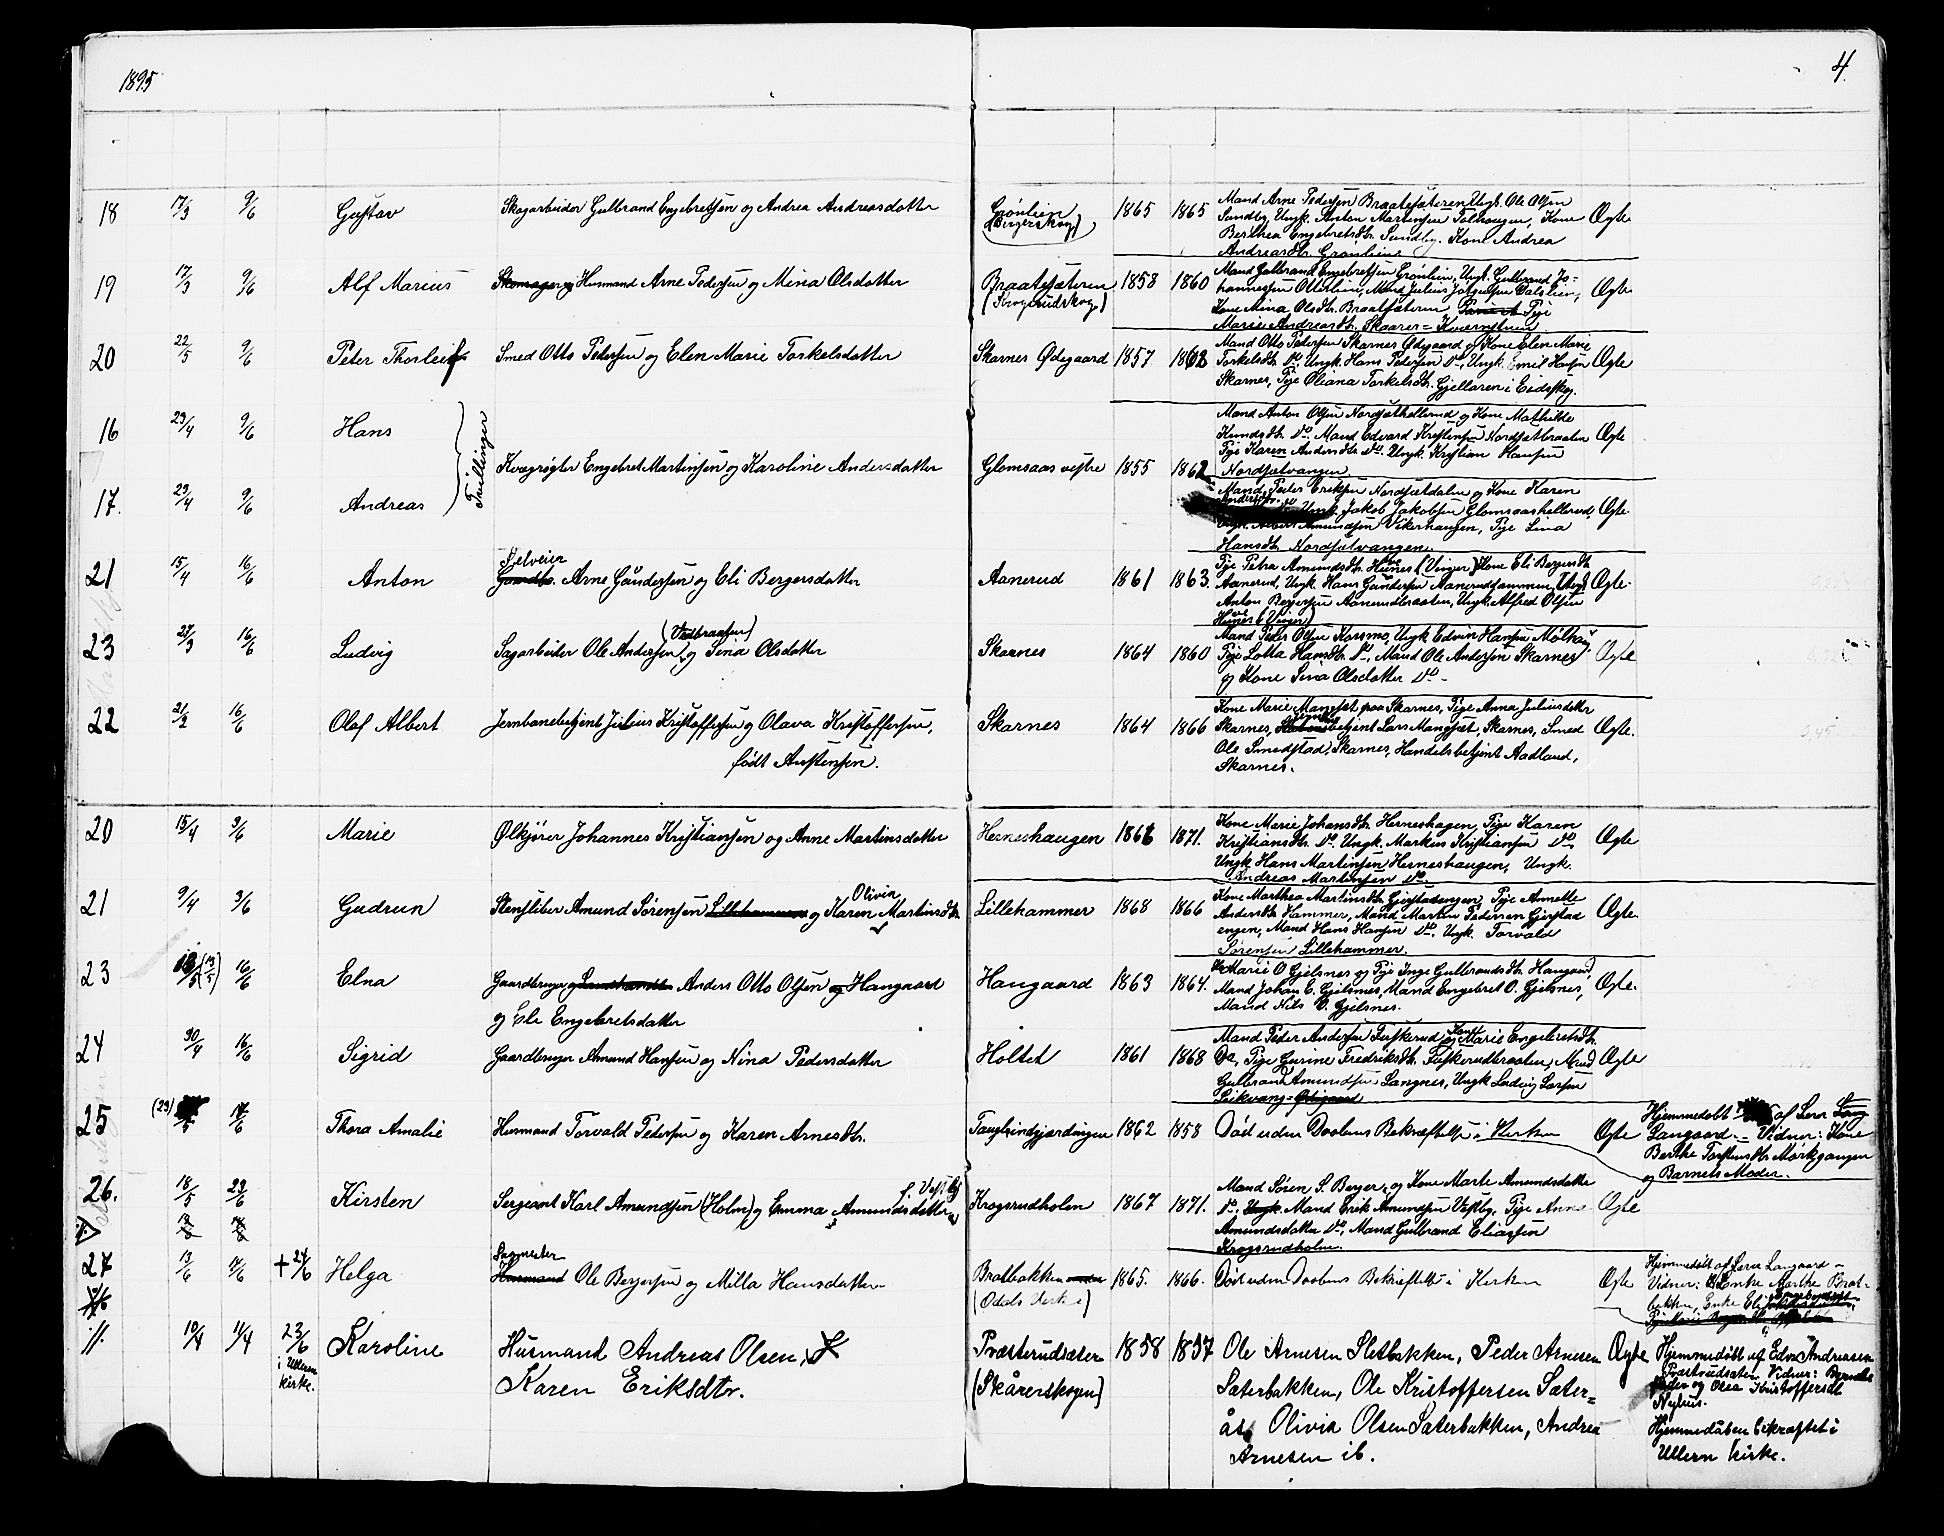 1895
4.
18 17/3 9/6 Gustav Skogarbeider Gulbrand Engebretsen og Andrea Andreasdatter Grønlien (Bergerskog) 1865 1865 Mand Arne Pedersen Braatesæteren Ungk. Ole Olsen
Sundby, Ungk. Anton Martinsen Kone Ægte
Berthea Engebretsdtr. Sundby. Kone Andrea
Andreasdtr. Grønlien
19 17/3 9/6 Alf Marius Husmand Arne Pedersen og Mina Olsdatter Braatesæteren (Krogsrudskog) 1858 1860 Mand Gulbrand Engebretsen Grønlien, Ungk. Gulbrand Jo-
hannessen Otterlien, Mand Julius Ægte
Kone Mina Olsdtr. Braatesæteren Pige
Marie Andreasdtr. Skaarer-
20 22/5 9/6 Peter Thorleif Smed Otto Petersen og Elen Marie Torkelsdatter Skarnes Ødegaard 1857 1862 Mand Otto Petersen Skarnes Ødegaard og Kone Elen Marie
Torkelsdtr. Do, Ungk. Hans Pedersen Do, Ungk. Emil Hansen Ægte
Skarnes, Pige Oliana Torkelsdtr. Gjellaren i Eidskog.
16 23/4 9/6 Hans Mand Anton Olsen Nordsæthellerud og Kone Mathilde
Knudsdtr. Do. Mand Edvard Kristensen Nordsætbraaten Ægte
Tvillinger Kvægrøgter Engebret Martinsen og Karoline Andersdatter Glomsaas vestre 1855 1862 Pige Karen Andersdtr. Do. Ungk. Kristian Hansen
Nordsætvangen
17. 23/4 9/6 Andreas Mand Peder Eriksen Nordsætdalen og Kone Karen
Jakob Jakobsen Glomsaashellerud, Ægte
Amundsen Vikerhaugen, Pige Lina
Hansdtr. Nordsætvangen.
21 15/4 16/6 Anton Selveier Gaardbr. Arne Gundersen og Eli Bergersdatter Aanerud 1861 1863. Pige Petra Amundsdtr. Hernes (Vinger) Kone Eli Bergersdtr.
Aanerud, Ungk. Hans Gundersen Ungk. Ægte.
Anton Bergersen Aanerudbraaten, Ungk. Alfred Olsen
(Vinger)
23 27/3 16/6 Ludvig Sagarbeider Ole Andersen (Vedbraaten) og Sina Olsdatter Skarnes 1864 1860 Mand Peder Olsen Korsmo, Ungk Edvin Hansen
Pige Lotta Hansdtr. Do, Mand Ole Andersen Skarnes Ægte
og Kone Sina Olsdatter Do
22 21/2 16/6 Olaf Albert Jernbanebetjent Julius Kristoffersen og Olava Kristoffersen,
født Austensen. Skarnes 1864 1866 Kone Marie Mangset fra Skarnes, Pige Anna Juliusdatter
Skarnes, betjent Lars Mangset, Skarnes, Smed Ægte.
Ole Smedstad, Skarnes, Handelsbetjent Aadland,
Skarnes.
20 15/4 3/6 Marie Ølkjører Johannes Kristiansen og Anne Martinsdatter Herneshaugen 1866 1871. Kone Marie Johansdtr. Herneshagen, Pige Karen
Kristiansdtr. Do. Ungk. Markus Kristiansen Do, Ægte
Ungk Hans Martinsen Herneshaugen, Ungk.
Andreas Martinsen Do.
21 9/4 3/6 Gudrun Stensliber Amund Sørensen Lillehammer og Karen Olivia Martinsdtr. Lillehammer 1868 1866 Kone Marthea Martinsdtr. Gjerstadengen, Pige Annette
Andersdtr. Hammer, Mand Martin Pedersen Gjerstad Ægte.
engen, Mand Hans Hansen Do. Ungk. Torvald
Sørensen Lillehammer.
23 (13/5) 16/6 Elna Gaardbruger Anders Otto Olsen Haugaard
og Eli Engebretsdatter Haugaard 1863 1864. Marie O Gjelsnes og Pige Inga Gulbrandsdtr. Haugaard,
Mand Johan E. Gjelsnes, Mand Engebret O. Gjelsnes, Ægte.
Mand Nils O. Gjelsnes.
24 30/4 16/6 Sigrid Gaardbruger Amund Hansen og Nina Pedersdatter Holtet 1861 1868 Mand Peder Andersen Fuskerud og Kone Marie Engebretsdtr.
Do, Pige Gurine Fredriksdtr. Fuskerudbraaten, Mand Ægte
Gulbrand Amundsen Langnes, Ungk Ludvig Larsen
25 (29) 5 Thora Amalie Husmand Torvald Pedersen og Karen Arnesdtr. 1862 1858 Død uden Daabens Bekræftelse i Kirken Ægte Hjemmedøbt af Lærer
Langaard. - Vidner: Kone
Berthe Torstensdtr. Mørkgangen
og Barnets Moder.
26. 18/5 23/6 Kirsten Sergeant Karl Amundsen (Holm) og Emma Amundsdatter f. Vestby Krogsrudholen 1867 1871. Mand Søren S. Berger og Kone Marte Amundsdatter
Do, Mand Erik Amundsen Vestby, Pige Anne Ægte
Amundsdatter Do, Mand Gulbrand Eliassen
Krogsrudholm.
27 13/6 + 24/6 Helga Sagmester Husmand Ole Bergersen og Milla Hansdatter Bratbakken (Odals Verk) 1865. 1866. Død uden Daabens Bekræftelse i Kirken Ægte Hjemmedøbt af Lærer Langaard -
Vidner: Enke Marthe Brat-
bakken, Enke Eli
11. 10/4 11/4 23/6 i Ullern kirke. Karoline Husmand Andreas Olsen
Karen Eriksdtr. Præsterudsæter (Skårerskogen) 1858 1857 Ole Arnesen Sletbakken, Peder Arnesen
Sæterbakken, Ole Kristoffersen Sæter=
ås, Olivia Olsen Sæterbakken, Andrea
Arnesen ib. Ægte Hjemmedøbt af Edv. Andreasen
Præsterudsæter Vidner: Barnets
fader og Olea Kristoffersdt
Nyhus.
Hjemmedåben bekræftet i
Ullern kirke.